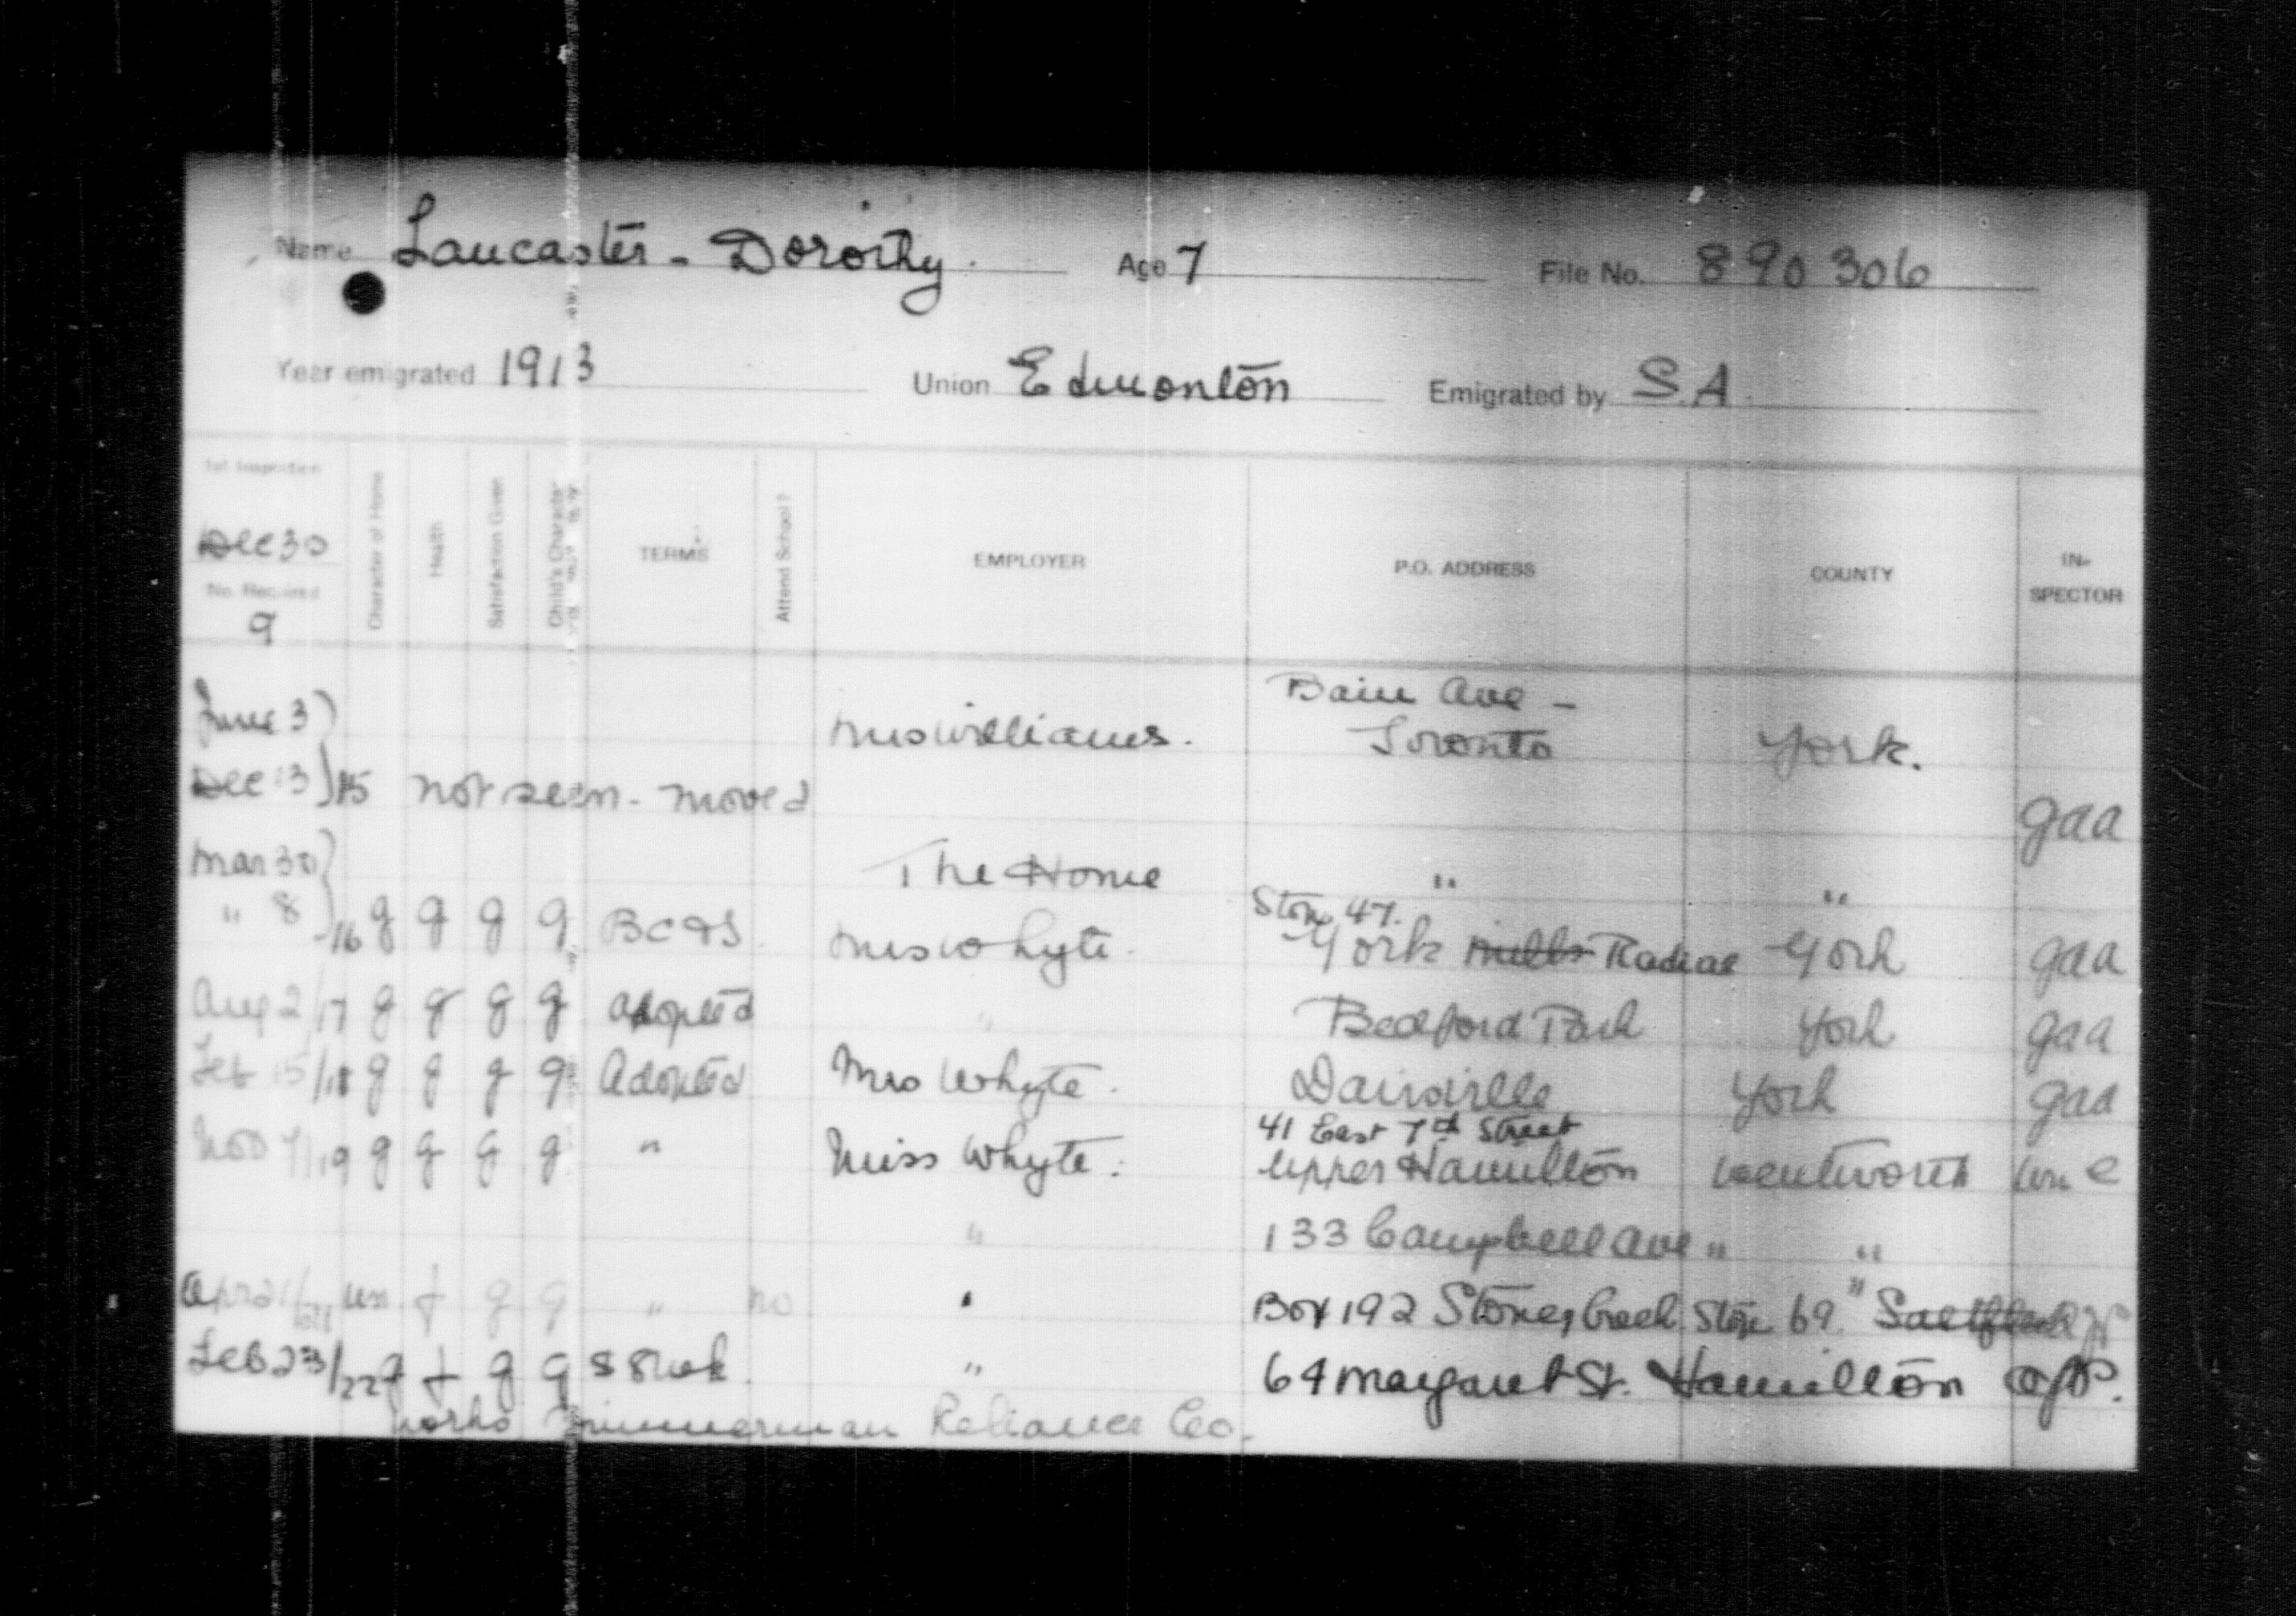 Name Lancaster - Dorothy. Age 7 File No. 890 306
Year emigrated 1913 Union Edmonton Emigrated by S.A
1st Inspection Dec 30 No. Required 9 Character of Home Health Satisfaction Given Child's Character TERMS Attend School? EMPLOYER P.O. ADDRESS COUNTY IN-SPECTOR
Bain Ave -
June 3) Mrs Williams. Toronto York.
Dec 13)15 not seen - moved gaa
Mar 30) The Home " "
Stop 47.
" 8)16 g g g g B C & S Mrs Whyte. York Mills Radial York gaa
Aug 2/17 g g g g adopted " Bedford Park York gaa
Feb 15/18 g g g g Adopted Mrs Whyte. York gaa
41 East 7th Street
Nov 7/19 g g g g " Miss Whyte. Upper Hamilton Wentworth
" 133 Campbell Ave " "
Apr 21/ un f g g " no " Box 192 Stoney Creek Stop 69. " Saltfleet
Feb 23/22 g f g g " 64 Margaret St. Hamilton
works Zimmerman Reliance Co.